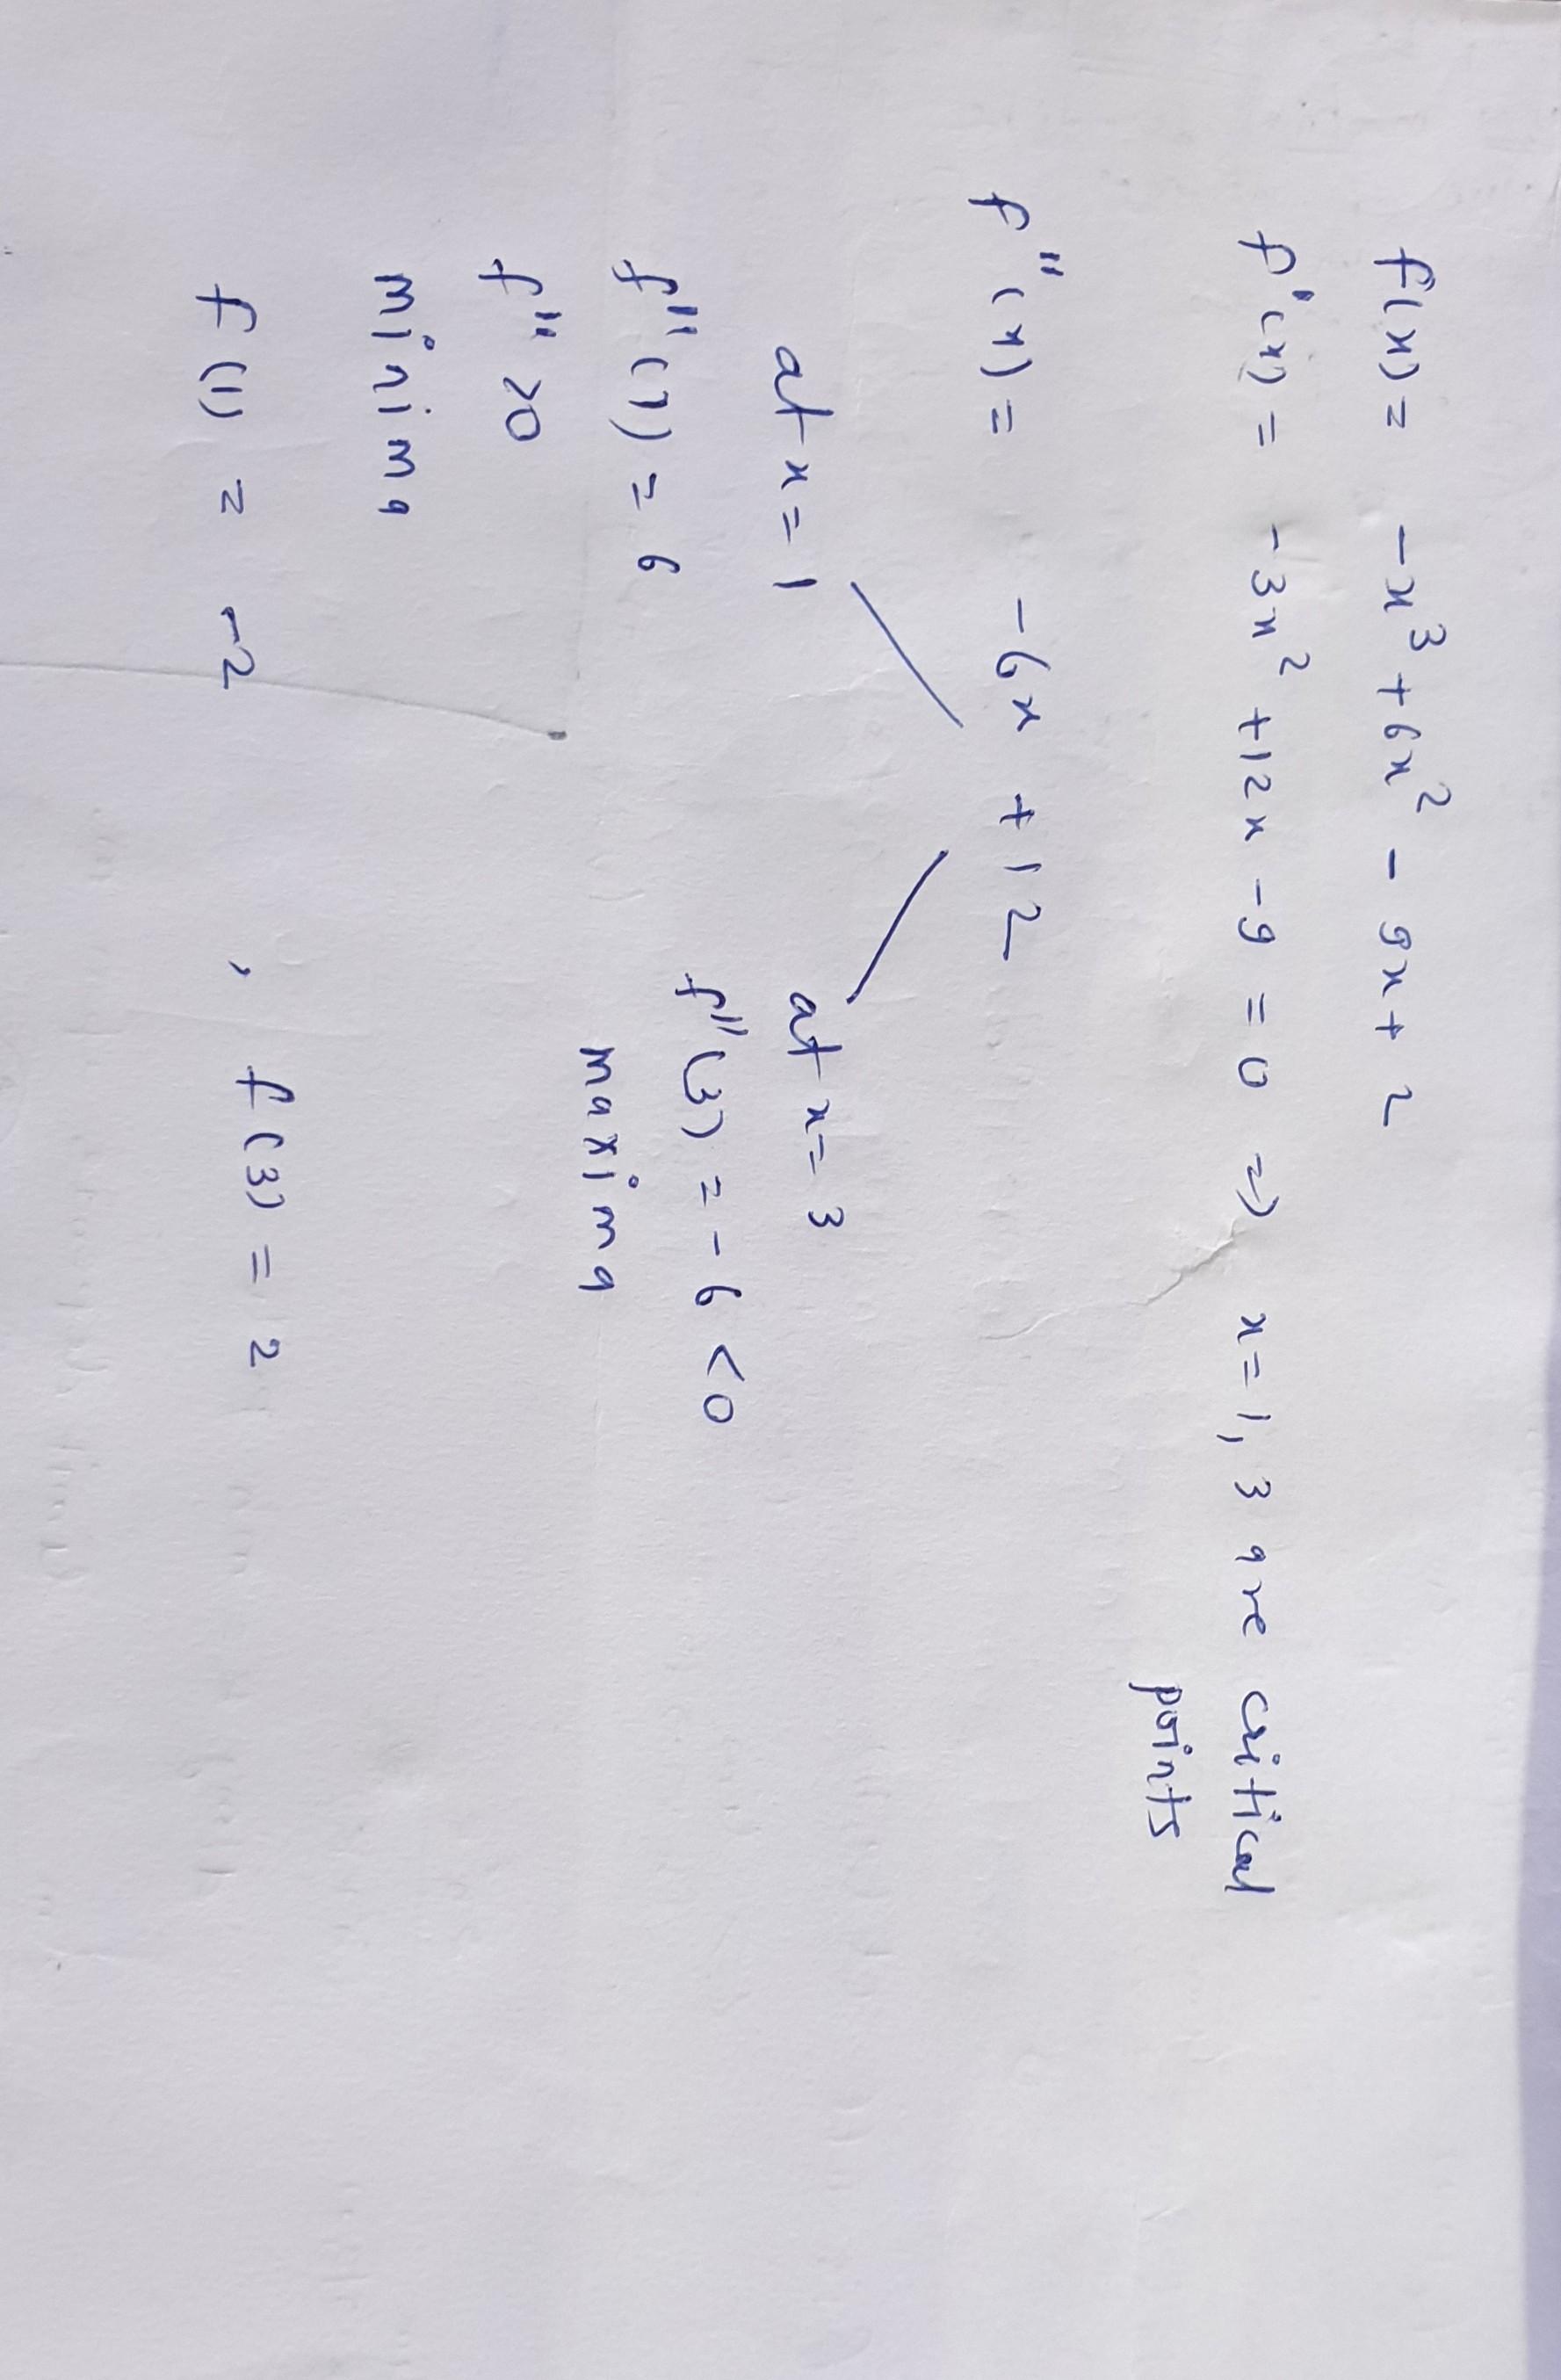 f(x) = -x³ + 6x² - 9x + 2
f'(x) = -3x² + 12x - 9 = 0 => x = 1, 3 are critical
points
f''(x) = -6x + 12
at x = 1
at x = 3
f''(1) = 6
f''(3) = -6 < 0
f'' > 0
maxima
minima
f(1) = -2 , f(3) = 2